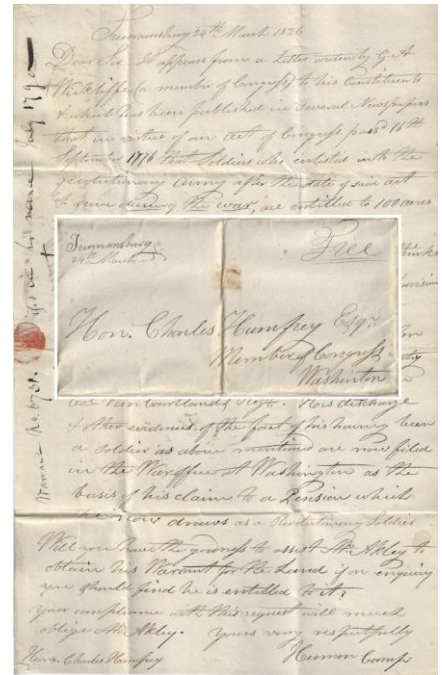 Trumansburg 24th March 1826
Dear Sir It appears from a Letter written by
(a member of Congress) to his Constituents
& which has been published in several Newspapers
that in virtue of an Act of Congress pass'd 16th
September 1776 that Soldiers who enlisted into the
revolutionary Army after the date of said act
to serve during the war, are entitled to 100 acres
Trumansburg
24th March
Free
Hon. Charles Humfrey Esqr.
Member of Congress
Washinton
His discharge
& other evidences of the fact of his having been
a soldier as above mentioned are now filed
in the War office at Washington as the
basis of his claim to a Pension which
he now draws as a Revolutionary Soldier
Will you have the goodness to assist Mr. Akley to
obtain his Warrant for the Land if on enquiry
you should find he is entitled to it.
your compliance with this request will much
oblige Mr. Akley. yours very respectfully
Herman Camp
Hon. Charles Humfrey
in his name July 1790
Warrant No. 6731